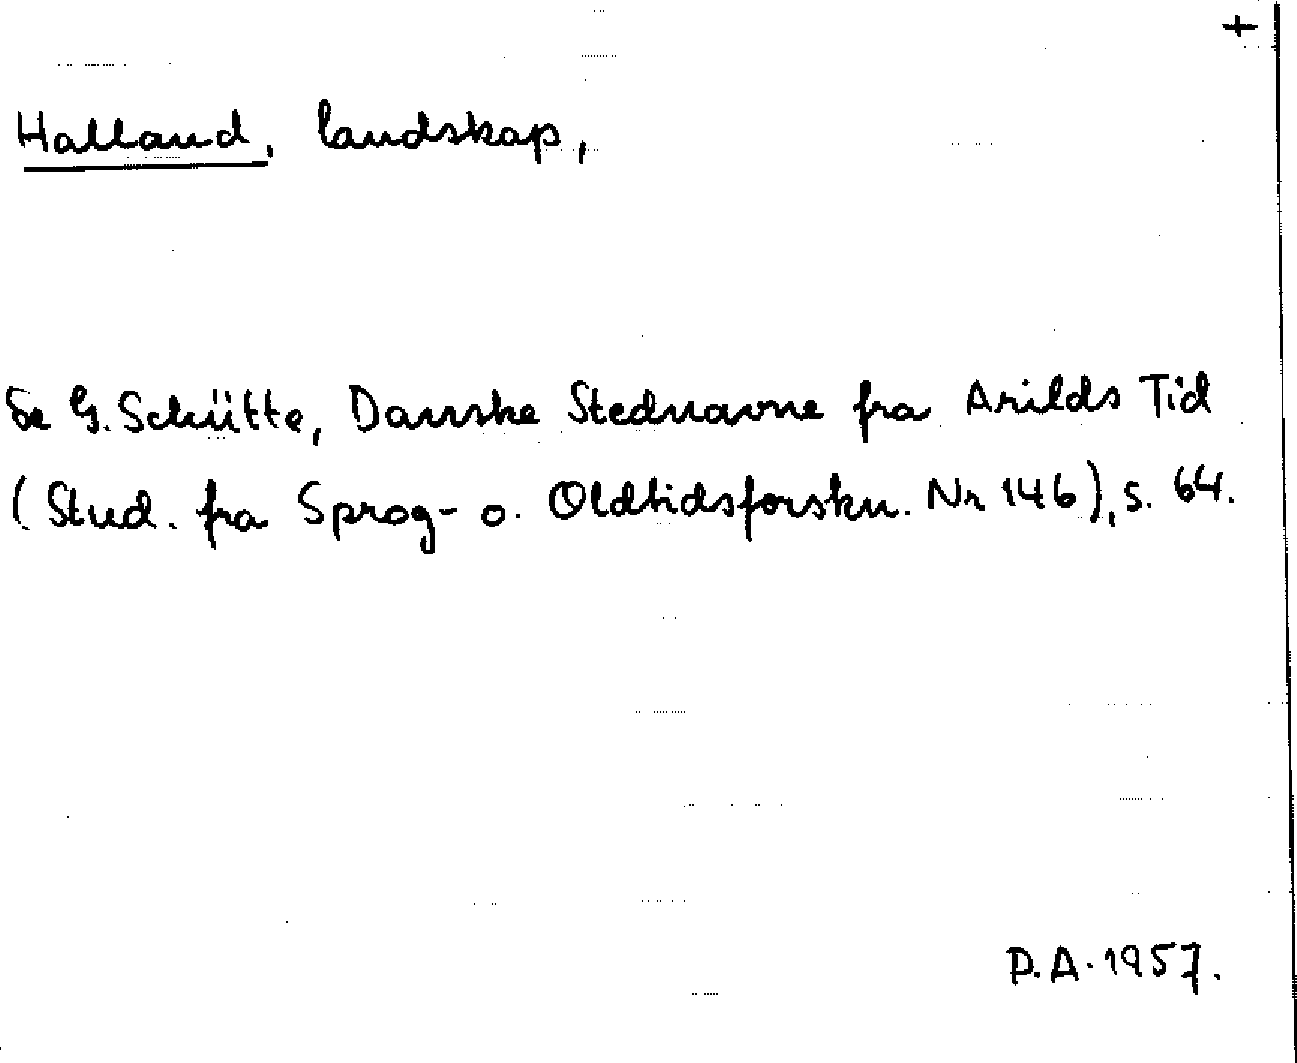 +
Halland, landskap,
Se G. Schütte, Danske Stednavne fra Arilds Tid
(Stud. fra Sprog- o. Oldtidsforskn. Nr 146), s. 64.
P.A. 1957.